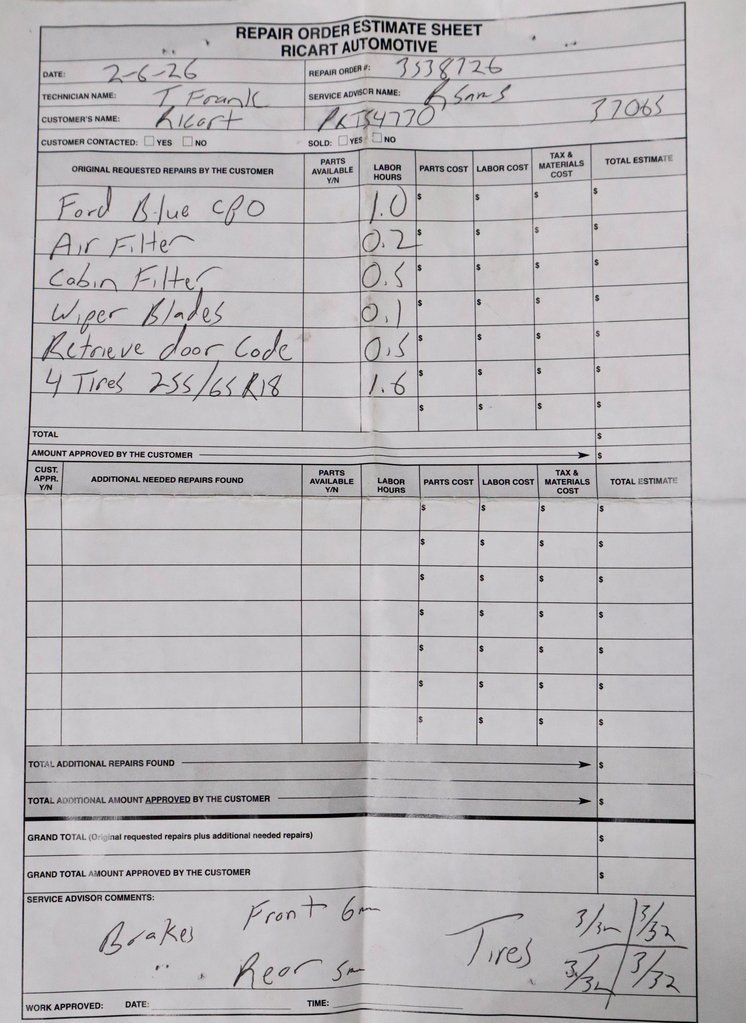 REPAIR ORDER ESTIMATE SHEET
RICART AUTOMOTIVE
DATE: 2-6-26 REPAIR ORDER #: 3538726
TECHNICIAN NAME: T Frank SERVICE ADVISOR NAME: R Sams
CUSTOMER'S NAME: Ricart PRTS4770 37065
CUSTOMER CONTACTED: YES NO SOLD: YES NO
ORIGINAL REQUESTED REPAIRS BY THE CUSTOMER PARTS AVAILABLE Y/N LABOR HOURS PARTS COST LABOR COST TAX & MATERIALS COST TOTAL ESTIMATE
Ford Blue CPO 1.0 $ $ $ $
Air Filter 0.2 $ $ $ $
Cabin Filter 0.5 $ $ $ $
Wiper Blades 0.1 $ $ $ $
Retrieve door Code 0.5 $ $ $ $
4 Tires 255/65 R18 1.6 $ $ $ $
$ $ $ $
TOTAL $
AMOUNT APPROVED BY THE CUSTOMER $
CUST. APPR. Y/N ADDITIONAL NEEDED REPAIRS FOUND PARTS AVAILABLE Y/N LABOR HOURS PARTS COST LABOR COST TAX & MATERIALS COST TOTAL ESTIMATE
$ $ $ $
$ $ $ $
$ $ $ $
$ $ $ $
$ $ $ $
$ $ $ $
$ $ $ $
TOTAL ADDITIONAL REPAIRS FOUND $
TOTAL ADDITIONAL AMOUNT APPROVED BY THE CUSTOMER $
GRAND TOTAL (Original requested repairs plus additional needed repairs) $
GRAND TOTAL AMOUNT APPROVED BY THE CUSTOMER $
SERVICE ADVISOR COMMENTS:
Brakes Front 6mm Tires 3/32 3/32
" Rear 5mm 3/32 3/32
WORK APPROVED: DATE: TIME: